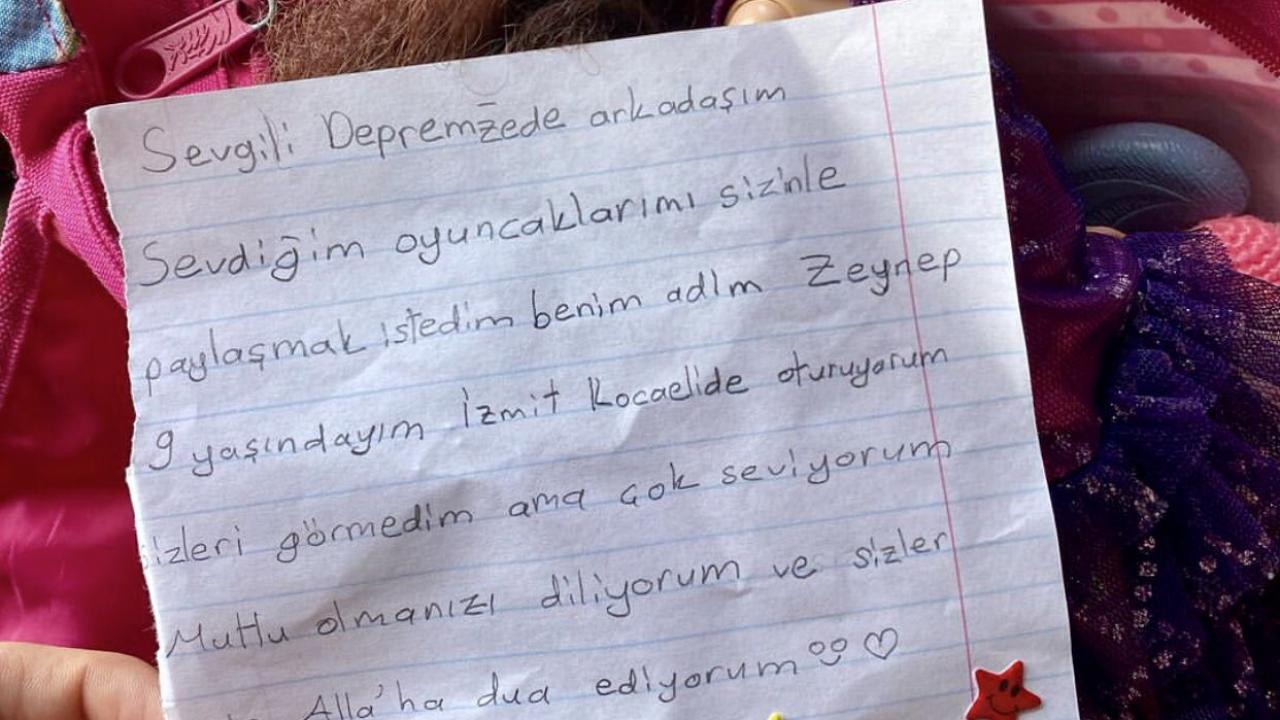 Sevgili Depremzede arkadaşım
Sevdiğim oyuncaklarımı sizinle
paylaşmak istedim benim adım Zeynep
9 yaşındayım İzmit Kocaelide oturuyorum
sizleri görmedim ama çok seviyorum
Mutlu olmanızı diliyorum ve sizler
Alla'ha dua ediyorum ♡